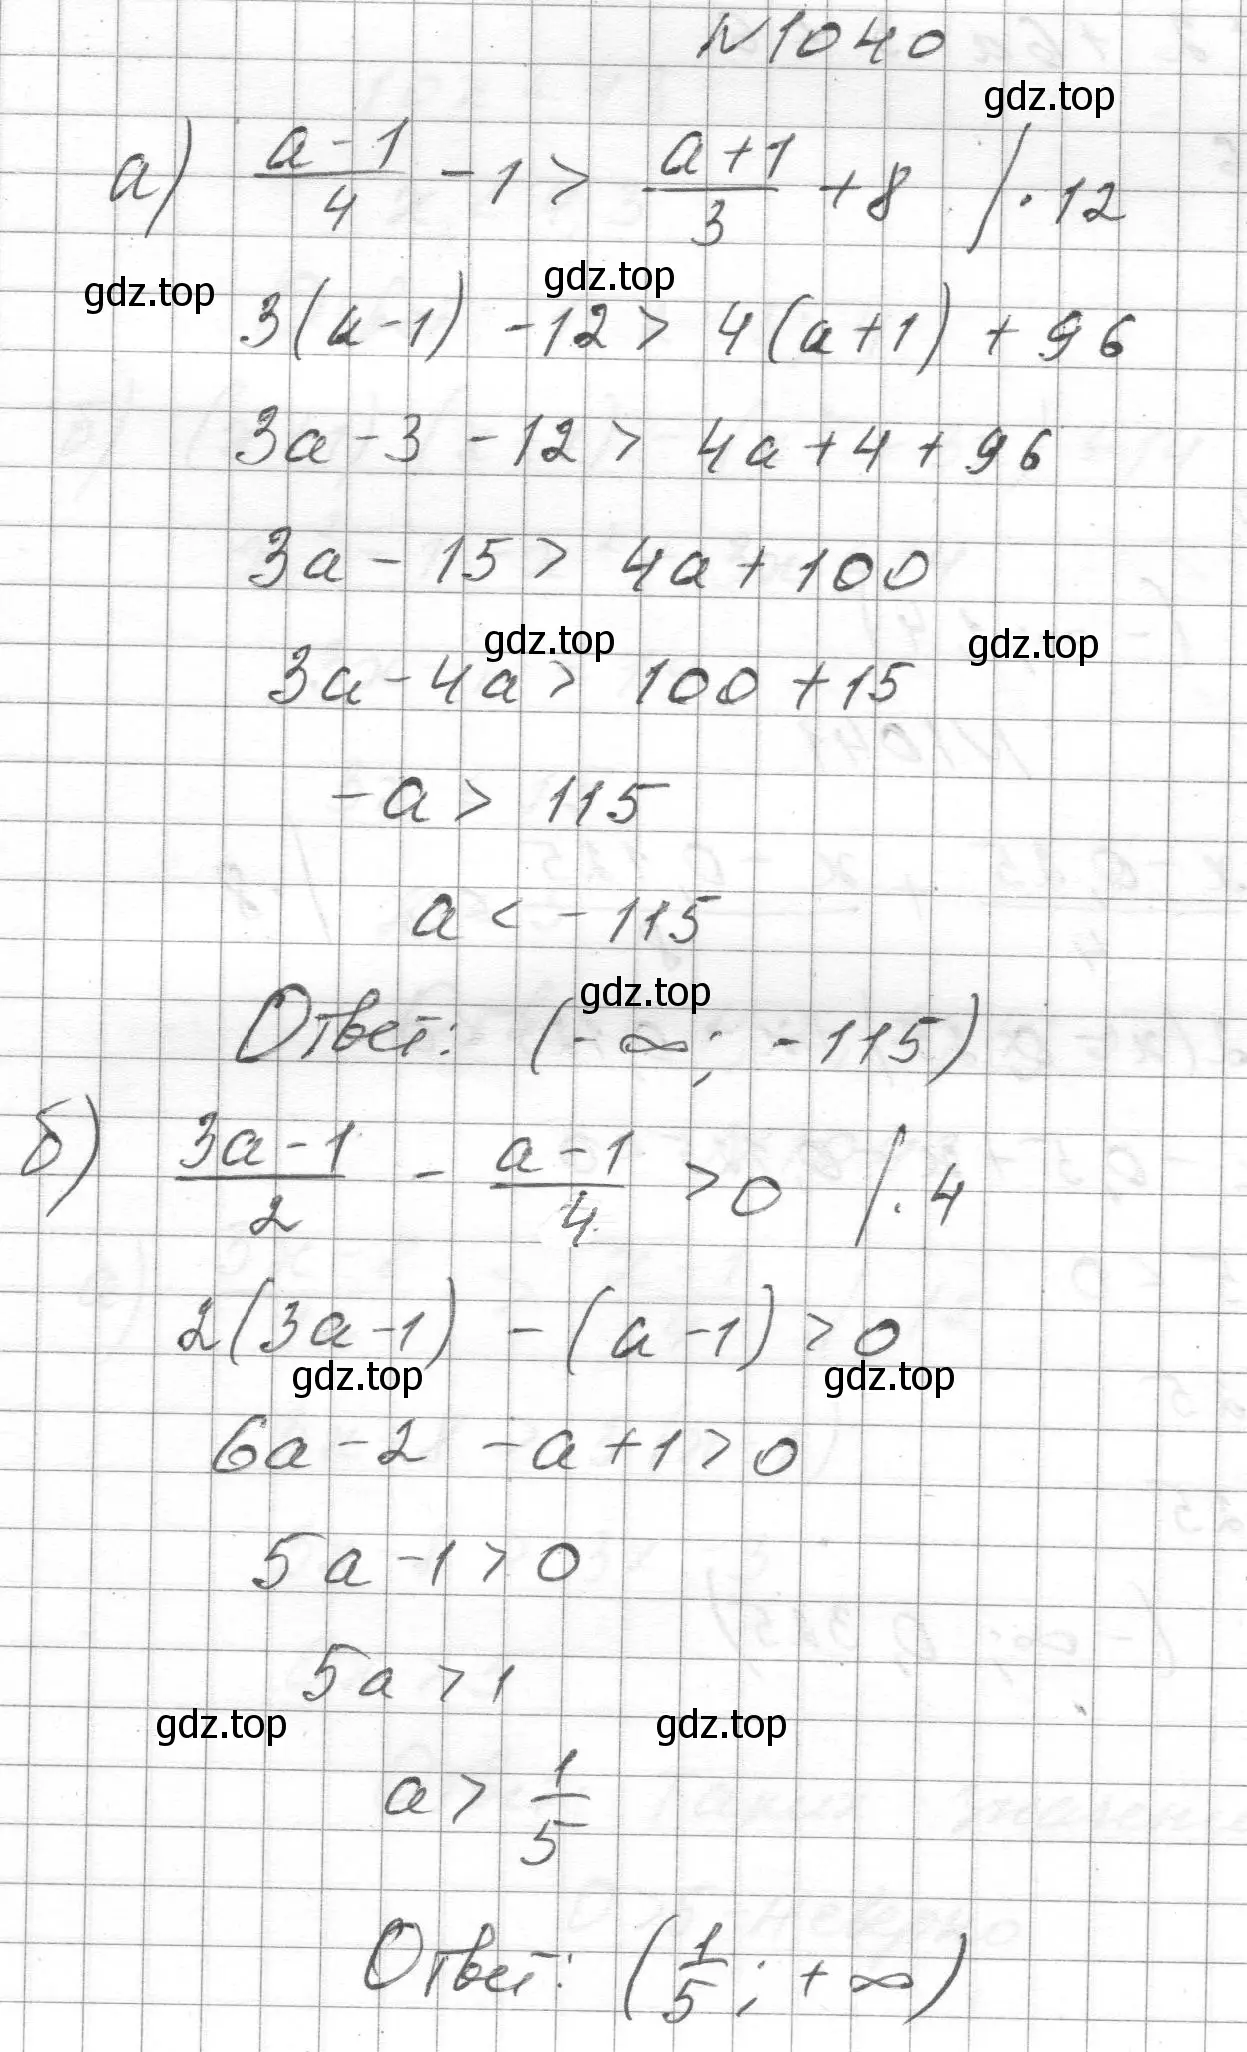 N1040
gdz.top
а) (a-1)/4 - 1 > (a+1)/3 + 8 /·12
gdz.top gdz.top
3(a-1) - 12 > 4(a+1) + 96
3a - 3 - 12 > 4a + 4 + 96
3a - 15 > 4a + 100
gdz.top gdz.top
3a - 4a > 100 + 15
-a > 115
a < -115
gdz.top
Ответ: (-∞; -115)
б) (3a-1)/2 - (a-1)/4 > 0 /·4
2(3a-1) - (a-1) > 0
gdz.top gdz.top
6a - 2 - a + 1 > 0
5a - 1 > 0
5a > 1
gdz.top gdz.top
a > 1/5
Ответ: (1/5; +∞)